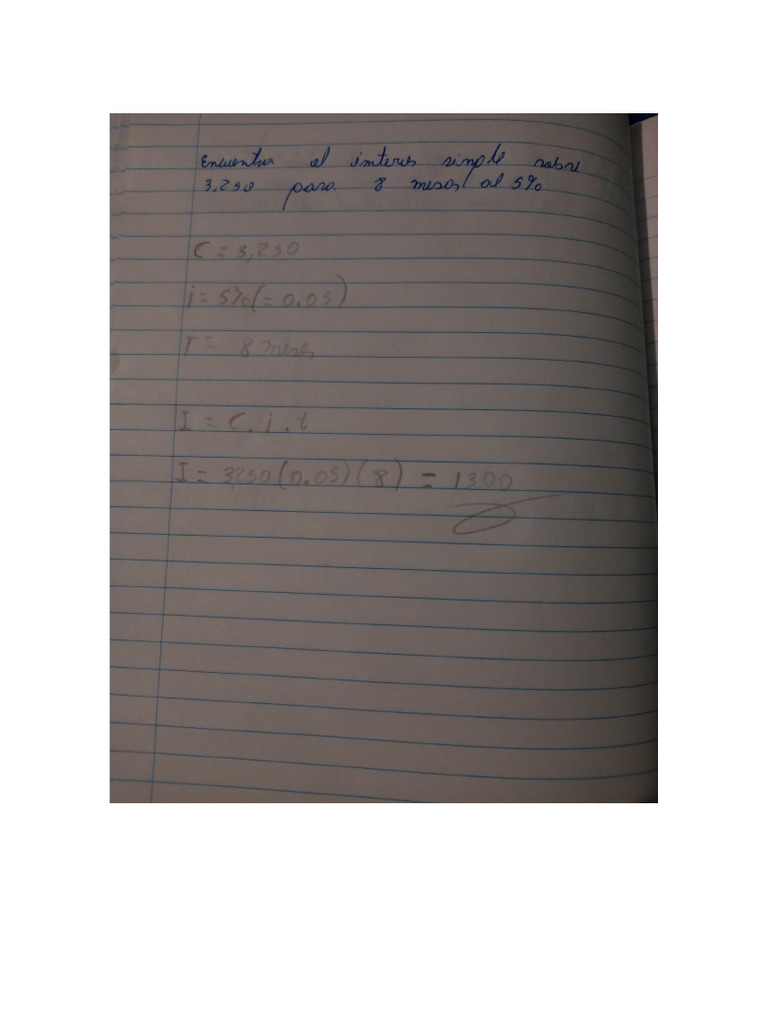 Encuentra el interes simple sobre
3,250 para 8 meses al 5%
C = 3,250
i = 5% (= 0.05)
T = 8 meses
I = C. i. t
I = 3,250 (0.05) (8) = 1300